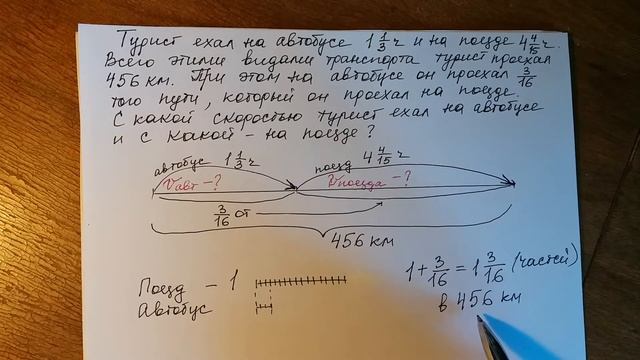 Турист ехал на автобусе 1 1/3 ч и на поезде 4 4/15 ч.
Всего этими видами транспорта турист проехал
456 км. При этом на автобусе он проехал 3/16
того пути, который он проехал на поезде.
С какой скоростью турист ехал на автобусе
и с какой - на поезде?
автобус 1 1/3 ч поезд 4 4/15 ч
Vавт -? Vпоезда -?
3/16 от
456 км
Поезд - 1
Автобус
1 + 3/16 = 1 3/16 (частей)
в 456 км